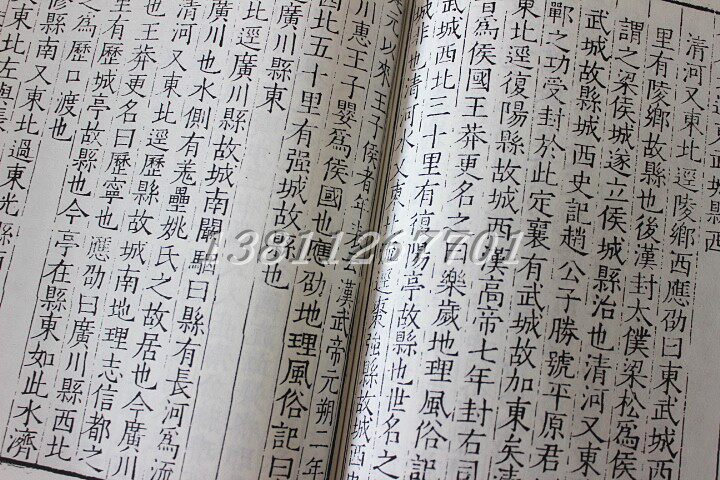 武城縣西
清河又東北逕陵鄉西應劭曰東武城西
里有陵鄉故縣也後漢封太僕梁松爲侯
謂之梁侯城遂立侯城縣治也清河又東
武城故縣城西史記趙公子勝號平原君
鄲之功受封於此定襄有武城故加東矣清
東北逕復陽縣故城西漢高帝七年封右司
爲侯國王莽更名之曰樂歲地理風俗記
武城西北三十里有復陽亭故縣也世名之
城非也清河水又東北逕棗強縣故城西史
以來王子侯者年表云漢武帝元朔二年
川惠王子嬰爲侯國也應劭地理風俗記曰
西北五十里有强城故縣也
廣川縣東
北逕廣川縣故城南闞駰曰縣有長河爲流
也水側有羌壘姚氏之故居也今廣川
清河又東北逕歷縣故城南地理志信都之
也王莽更名曰歷寧也應劭曰廣川縣西北
里有歷城亭故縣也今亭在縣東如此水濟
之爲歷口渡也
脩縣南又東北過東光縣西
東北左與張
13811267701